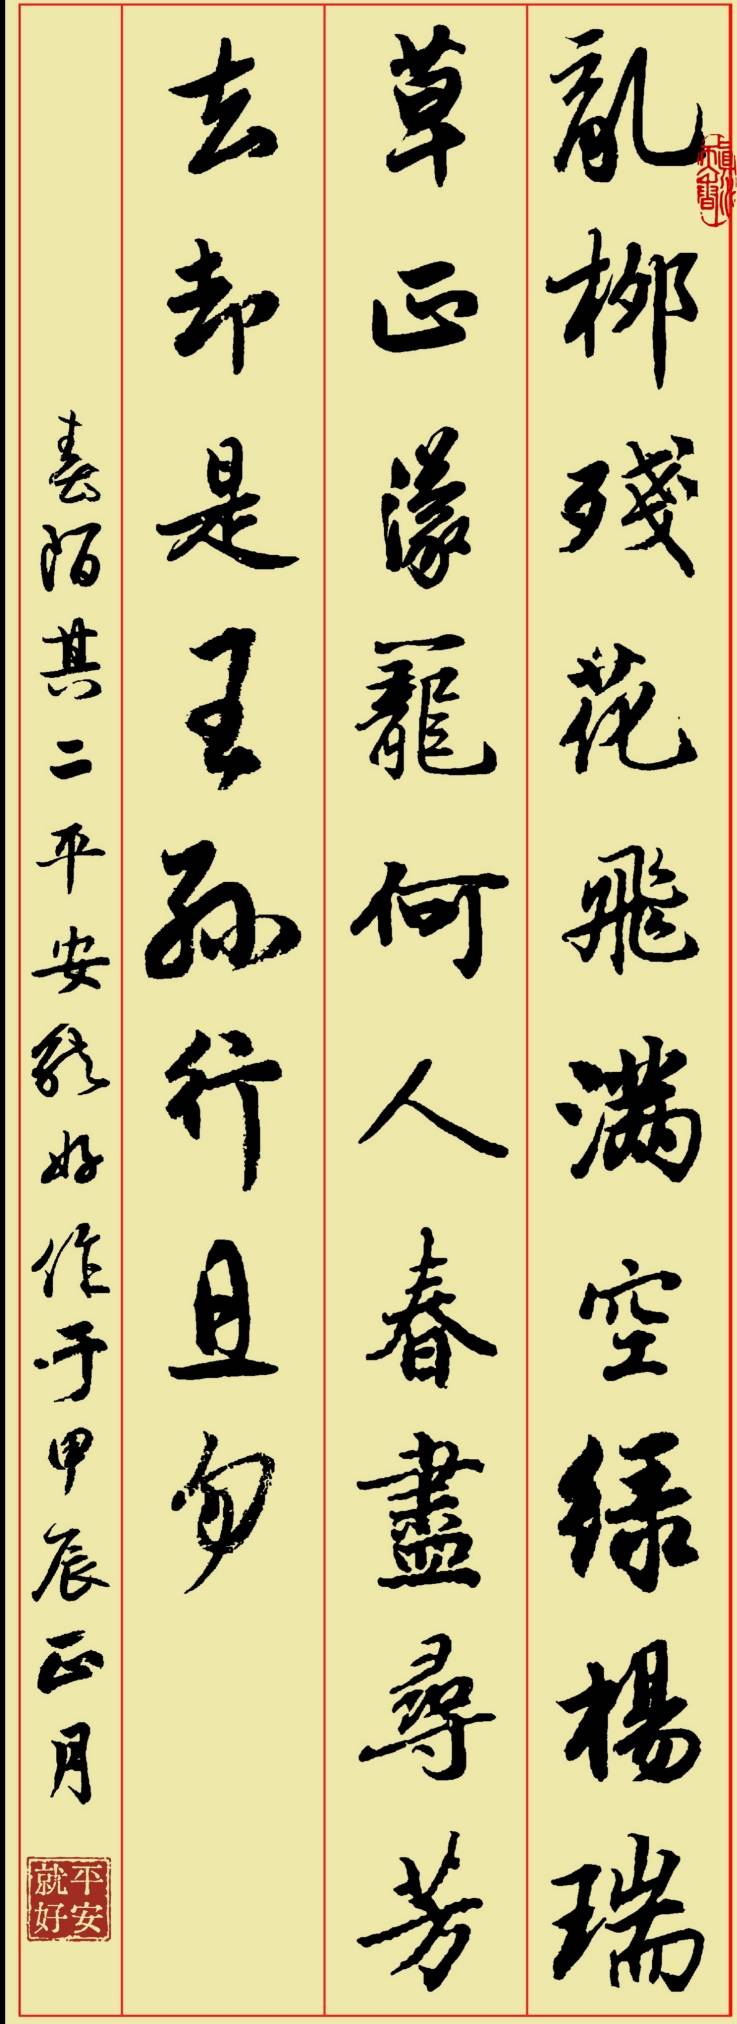 亂柳殘花飛滿空綠楊瑞
草正濛罷何人春盡尋芳
去却是王孫行且勿
春陌其二平安就好作于甲辰正月
平安就好